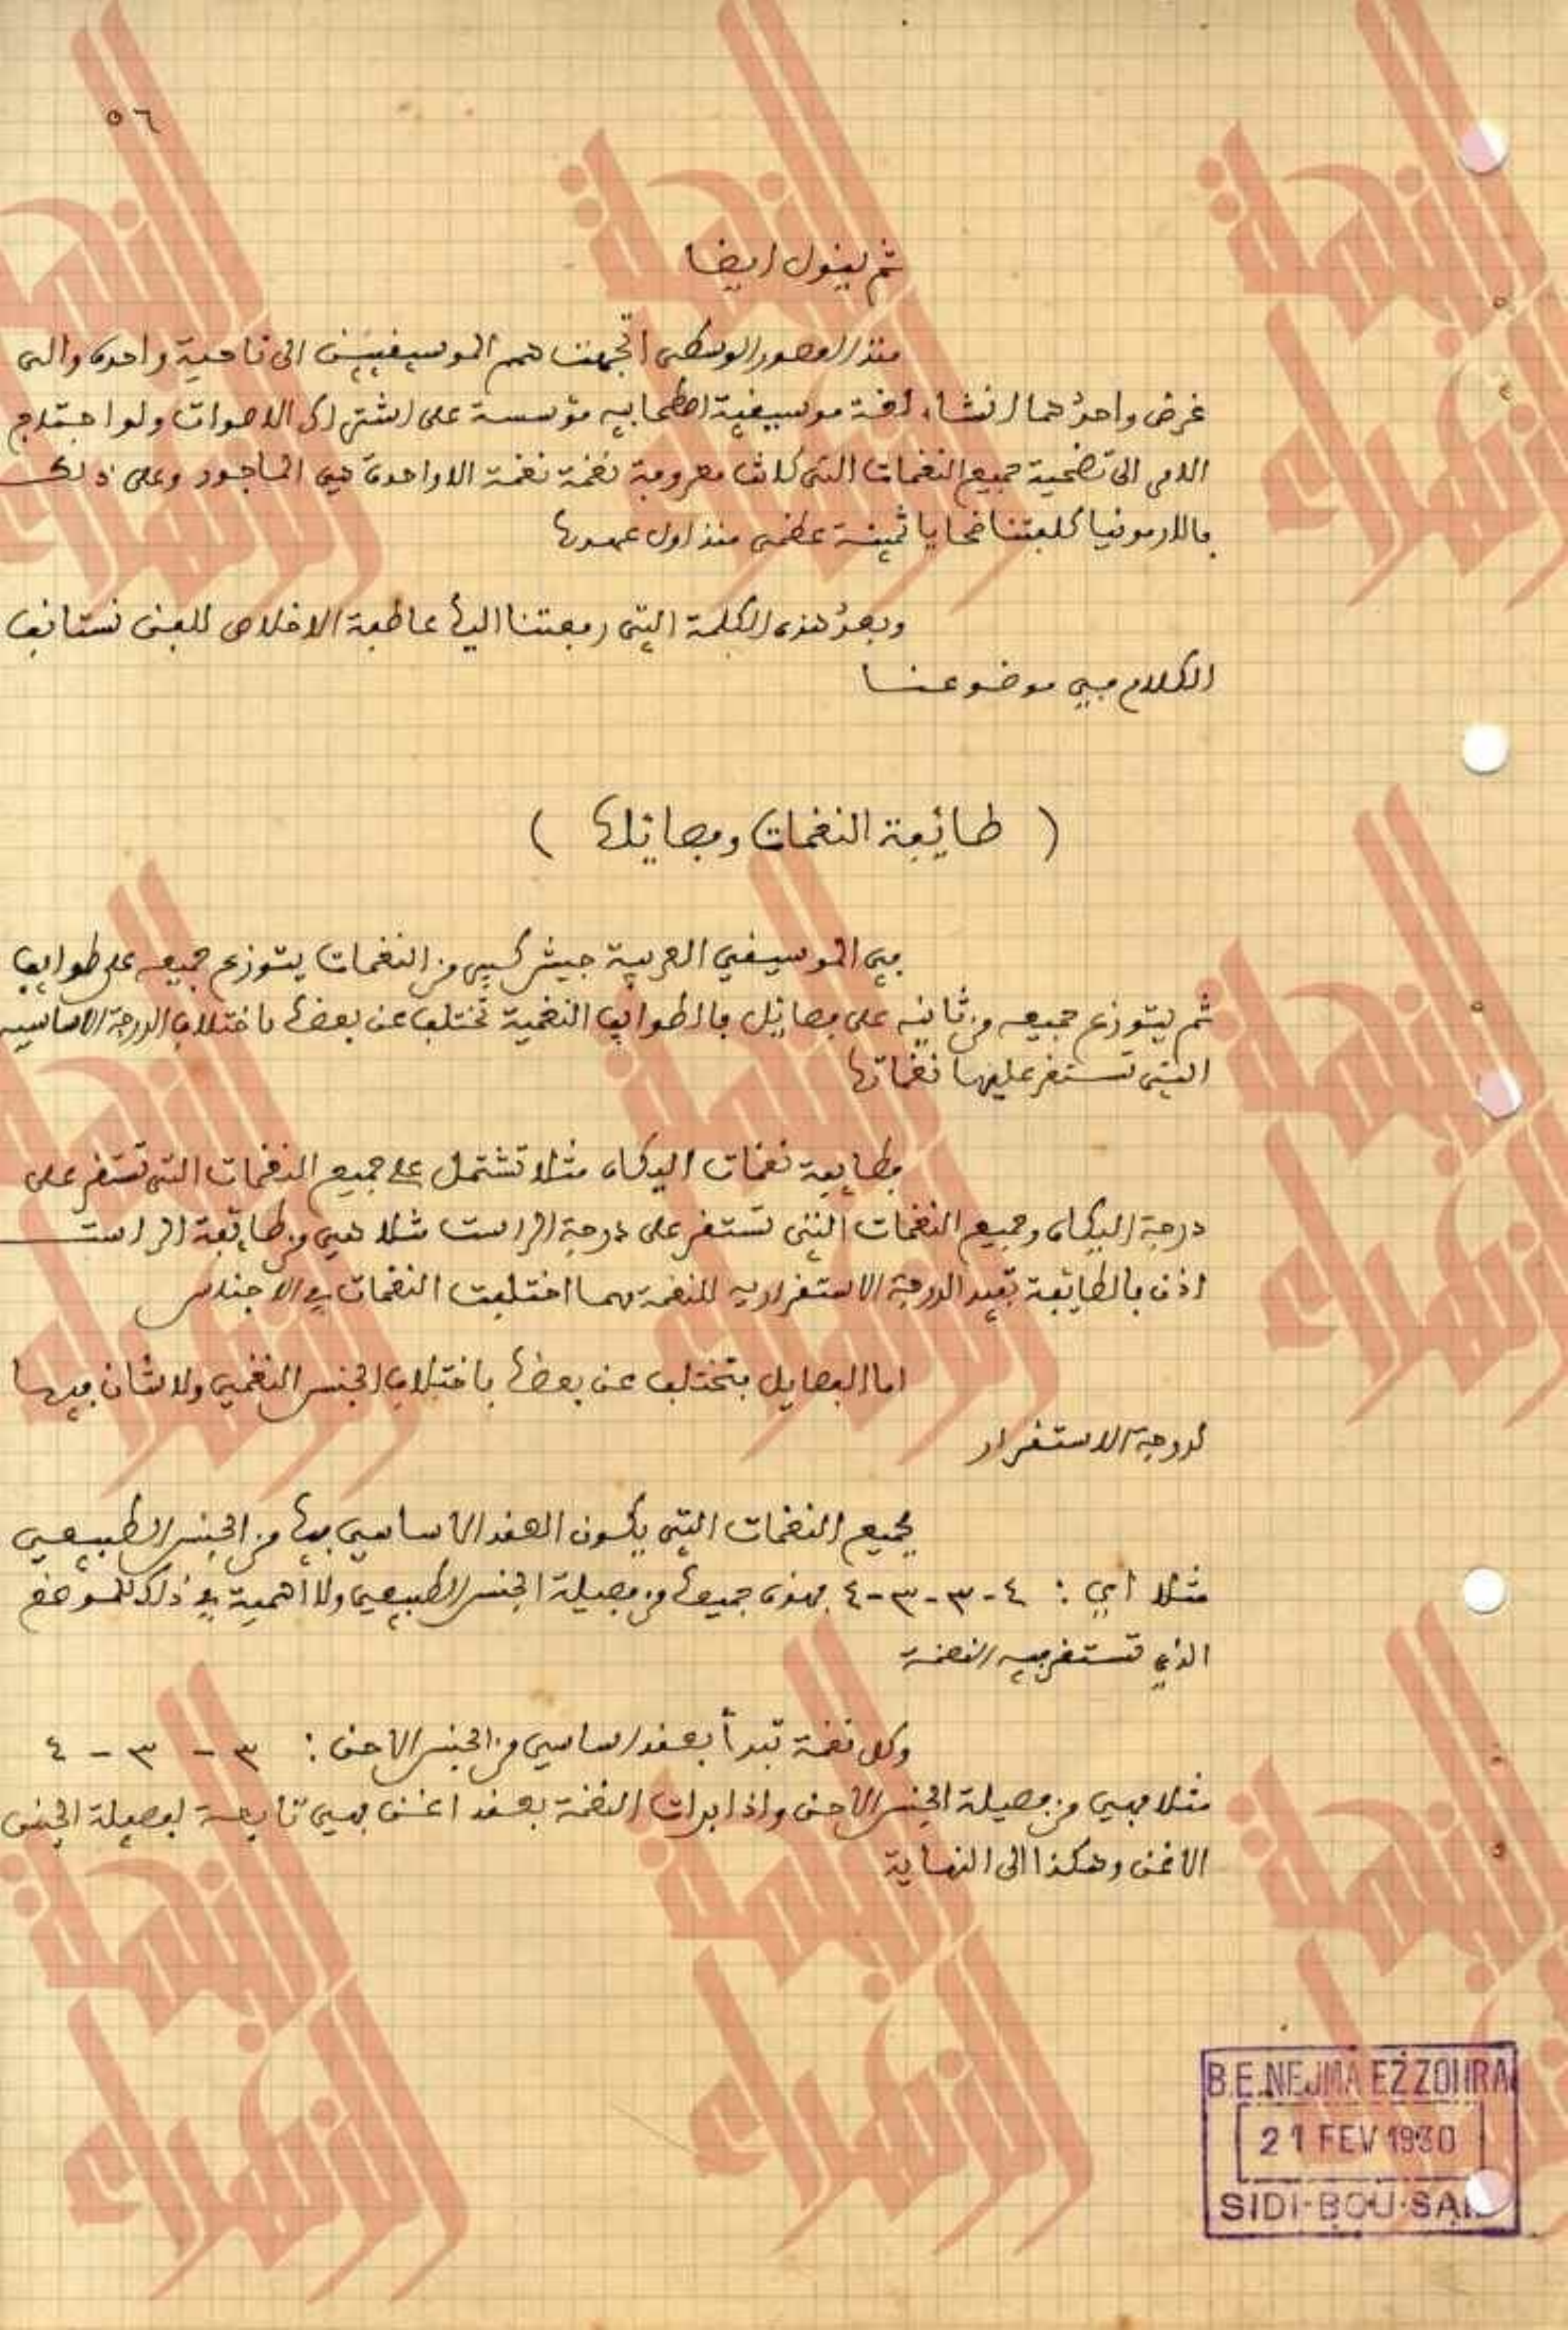 ٥٦
ثم يقول ايضا
منذ العصور الوسطى اتجهت همم الموسيقيين الى ناحية واحدة والى
غرض واحد هما انشاء لغة موسيقية اصطحابيه مؤسسة على اشتراك الاصوات ولو احتاج
الامر الى تضحية جميع النغمات التي كانت معروفة نغمة نغمة الا واحدة هي الماجور وعلى ذلك
فالارمونيا كلفتنا ضحايا ثمينة عظمى منذ اول عهدها
وبعد هذه الكلمة التي دفعتنا اليها عاطفة الاخلاص للفن نستانف
الكلام في موضوعنا
( طائفة النغمات وفصائلها )
في الموسيقي العربية جيش كبير من النغمات يتوزع جميعه على طوايف
ثم يتوزع جميعه من ثانيه على فصائل فالطوايف النغمية تختلف عن بعضها باختلاف الدرجة الاساسيه
التي تستقر عليها نغماتها
فطايفة نغمات الدكاه مثلا تشتمل على جميع النغمات التي تستقر على
درجة الدكاه وجميع النغمات التي تستقر على درجة الراست مثلا هي من طائفة الراست
اذن فالطائفة تفيد الدرجة الاستقراريه للنغمة مهما اختلفت النغمات في الاجناس
اما الفصايل فتختلف عن بعضها باختلاف الجنس النغمي ولا شان فيها
لدرجة الاستقرار
فجميع النغمات التي يكون العقد الاساسي فيها من الجنس الطبيعي
مثلا اي : ٤-٣-٣-٤ فهذه جميعها من فصيلة الجنس الطبيعي ولا اهمية في ذلك للموضع
الذي تستقر فيه النغمة
وكل نغمة تبدأ بعقد اساسي من الجنس الاحن : ٣ - ٣ - ٤
مثلا فهي من فصيلة الجنس الاحن واذا بدات النغمة بعقد اغن فهي تابعة لفصيلة الجنس
الاغن وهكذا الى النهاية
B.E.NEJMA EZZOHRA
21 FEV 1930
SIDI-BOU-SAI
النجمة الزهراء